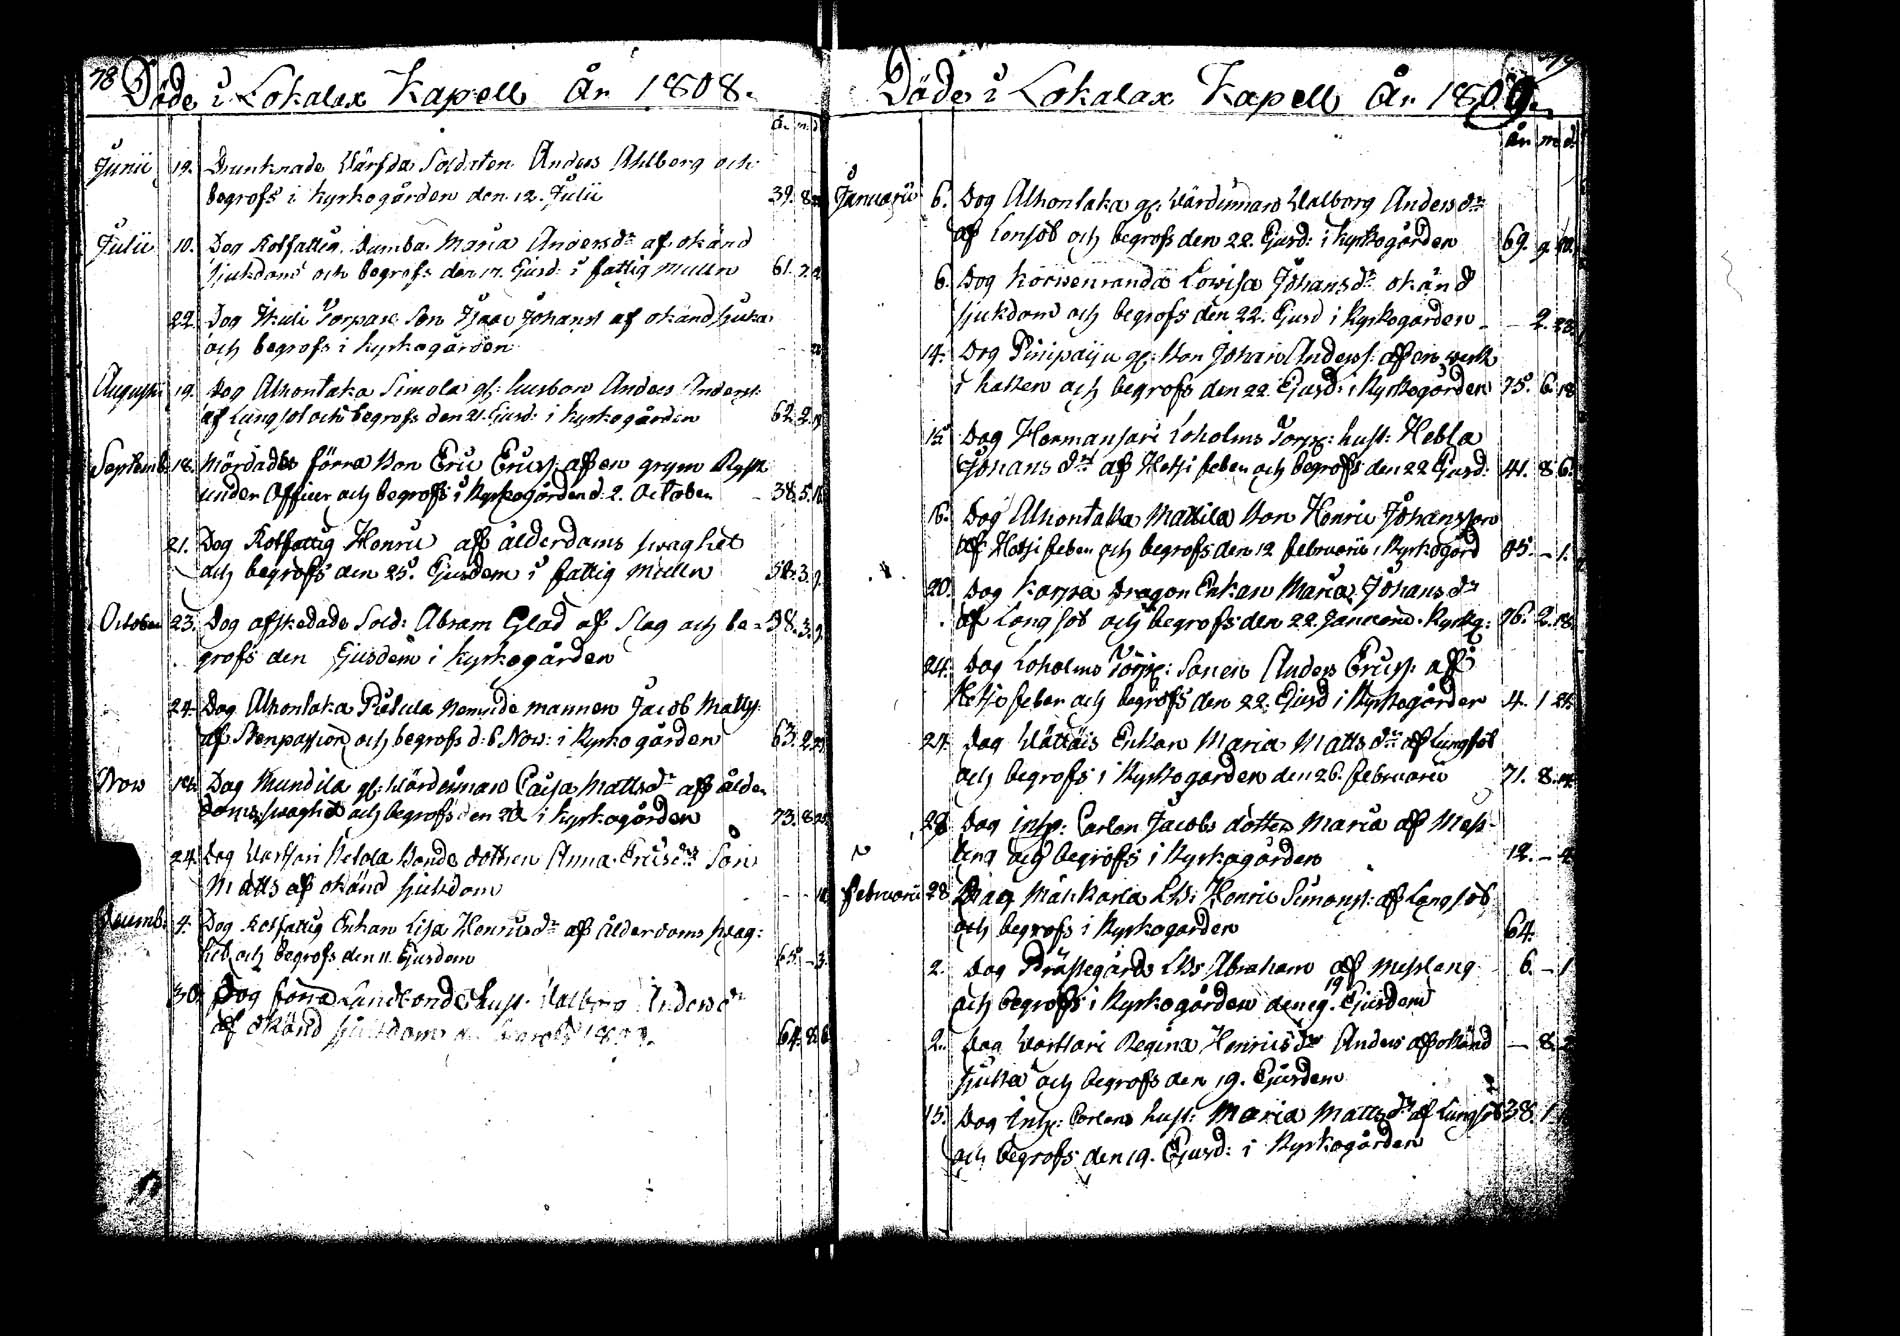 78 Döde i Lokalax Kapell År 1808.
å. m. d
Junii 19. Drunknade Värfda Soldaten Anders Ahlberg och
begrofs i kyrkogården den 12. Julii 39. 8
Julii 10. Dog Rotfattig Dumba Maria Andersdr af okänd
sjukdom och begrofs den 17. Ejusd: i fattig mullen 61. 2.
22. Dog Torpare Son Johanss af okänd sjuka
och begrofs i kyrkogården
Augusti 19. Dog Alhontaka Simola gl: husbon Anders Anderss:
af Lungsot och begrofs den 21. Ejusd: i kyrkogården 62. 2.
Septemb 18. Mördades förra Bon Eric Ericss. af en grym Rysk
under Officer och begrofs i Kyrkogården d. 2. October 38. 5.
21. Dog Rotfattig Henric af ålderdoms swaghet
och begrofs den 25. Ejusdem i fattig mullen 3. 9.
October 23. Dog afskedade Sold: Abram Glad af Slag och be= 38. 3. 9.
grofs den Ejusdem i kyrkogården
24. Dog Alhontaka Nemndemannen Jacob Mattss:
af Stenpassion och begrofs d: 6 Nov: i Kyrkogården 63. 2.
Nov Dog Mundila gl: Wärdinnan Caisa Mattsdr af ålder
doms swaghet och begrofs den i kyrkogården 73. 8
24. Dog Wartsari Ketola Bonde dottren Anna Ericsdrs Son
Matts af okänd sjukdom
Decemb. 4. Dog Rotfattig Enkan Lisa Henricsdr af ålderdoms swag:
het och begrofs den 11. Ejusdem 65. – 3.
30. Dog förra hust. Walborg Andersdr
af okänd sjukdom 64. 8. 6
Döde i Lokalax Kapell År 1809.
år. m d.
Januarii 6. Dog Alhontaka gl: Wärdinnan Walborg Andersdr
af Lonsot och begrofs den 22. Ejusd: i kyrkogården 69. 9.
6. Dog Körwenranda Lowisa Johansdr okänd
sjukdom och begrofs den 22. Ejusd i Kyrkogården – – 2. 23.
14. Dog Pinipaiju gl: Bon Johan Anderss: af en werk
i halsen och begrofs den 22. Ejusd: i Kyrkogården 75. 6. 18
15 Dog Hermansari Loholms Torp: hust: Hebla
Johansdr af Hetsi feber och begrofs den 22 Ejusd: 41. 8 6.
16. Dog Alhontaka Mattila Bon Henric Johansson
af Hetsi feber och begrofs den 12 februarii i Kyrkogård – 1.
20. Dog Karppa Dragon Enkan Maria Johansdr
af Longsot och begrofs den 22 Kyrkog: 76. 2. 18.
24. Dog Loholms Torp: Sonen Anders Ericss. af
Hetsi feber och begrofs den 22. Ejusd i Kyrkogården 4. 1 24
27. Dog Wättäis Enkan Maria Mattsdr af Lungsot
och begrofs i Kyrkogården den 26. februarii 71. 8.
28 Dog inhy: Carlen Jacobs dotter Maria af Mess-
ling och begrofs i Kyrkogården 12. –
februarii 28 Dog Mäkkarla Henric Simonss: af Longsot
och begrofs i Kyrkogården 64.
2. Dog Prästegårds Abraham af Messlang 6. – 1
och begrofs i Kyrkogården den 19. Ejusdem
2. Dog Wartsari Regina Henricsdrs Anders af okänd – 8.
sjuka och begrofs den 19. Ejusdem
15. Dog Inhy: Carlens hust: Maria Mattsdr af Lungsot 38. 1.
och begrofs den 19. Ejusd: i Kyrkogården